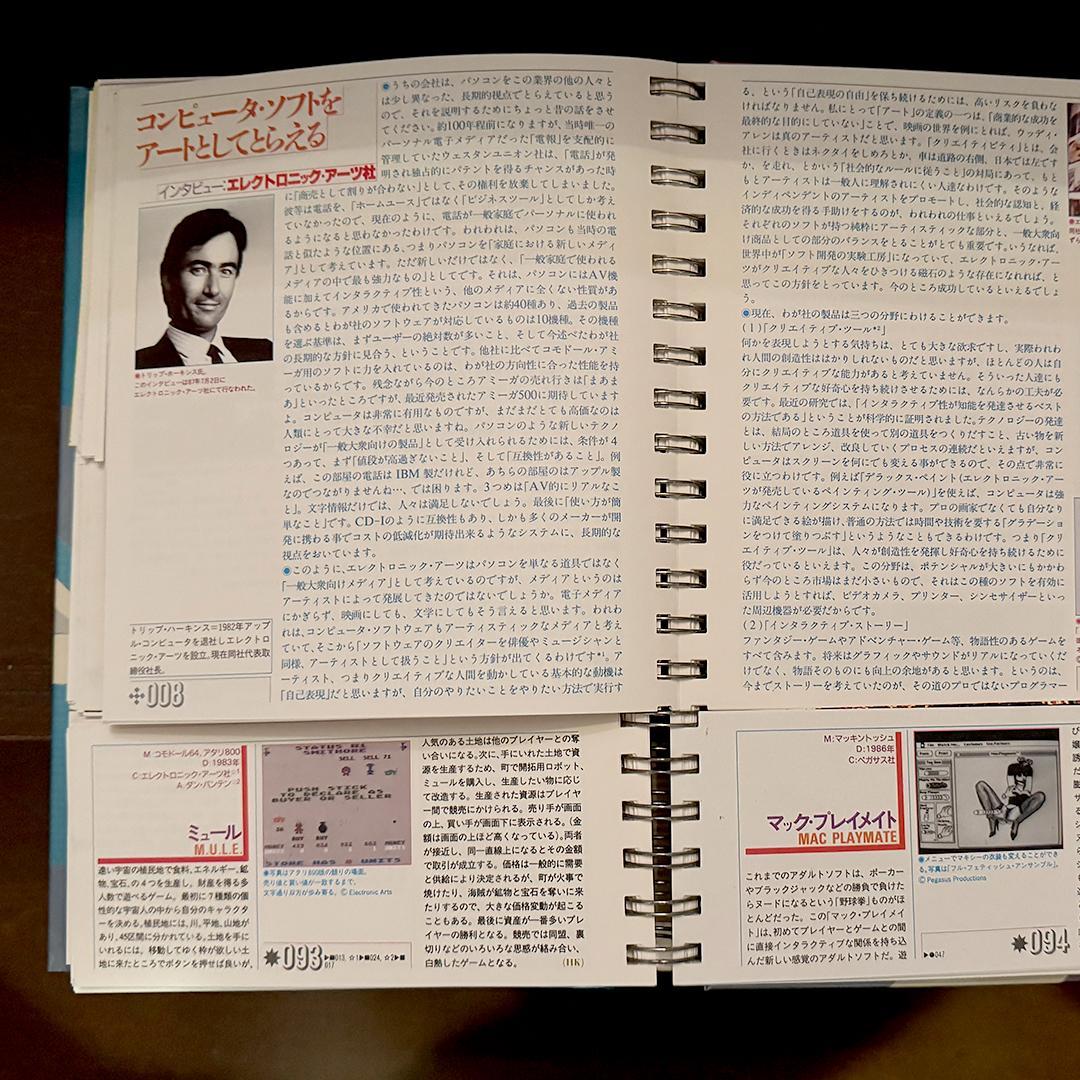 コンピュータ・ソフトを
アートとしてとらえる
インタビュー:エレクトロニック・アーツ社
●トリップ・ホーキンス氏。
このインタビューは87年7月2日に
エレクトロニック・アーツ社にて行なわれた。
トリップ・ハーキンス=1982年アップ
ル・コンピュータを退社しエレクトロ
ニック・アーツを設立。現在同社代表取
締役社長。
008
●うちの会社は、パソコンをこの業界の他の人々と
は少し異なった、長期的視点でとらえていると思う
ので、それを説明するためにちょっと昔の話をさせ
てください。約100年程前になりますが、当時唯一の
パーソナル電子メディアだった「電報」を支配的に
管理していたウェスタンユニオン社は、「電話」が発
明され独占的にパテントを得るチャンスがあった時
に「商売として割りが合わない」として、その権利を放棄してしまいました。
彼等は電話を、「ホームユース」ではなく「ビジネスツール」としてしか考え
ていなかったので、現在のように、電話が一般家庭でパーソナルに使われ
るようになると思わなかったわけです。われわれは、パソコンも当時の電
話と似たような位置にある、つまりパソコンを「家庭における新しいメディ
ア」として考えています。ただ新しいだけではなく、「一般家庭で使われる
メディアの中で最も強力なもの」としてです。それは、パソコンにはAV機
能に加えてインタラクティブ性という、他のメディアに全くない性質があ
るからです。アメリカで使われてきたパソコンは約40種あり、過去の製品
も含めるとわが社のソフトウェアが対応しているものは10機種。その機種
を選ぶ基準は、まずユーザーの絶対数が多いこと、そして今述べたわが社
の長期的な方針に見合う、ということです。他社に比べてコモドール・アミ
ーガ用のソフトに力を入れているのは、わが社の方向性に合った性能を持
っているからです。残念ながら今のところアミーガの売れ行きは「まあま
あ」といったところですが、最近発売されたアミーガ500に期待しています
よ。コンピュータは非常に有用なものですが、まだまだとても高価なのは
人類にとって大きな不幸だと思いますね。パソコンのような新しいテクノ
ロジーが「一般大衆向けの製品」として受け入れられるためには、条件が4
つあって、まず「値段が高過ぎないこと」、そして「互換性があること」。例
えば、この部屋の電話は IBM 製だけれど、あちらの部屋のはアップル製
なのでつながりませんね…、では困ります。3つめは「AV的にリアルなこ
と」。文字情報だけでは、人々は満足しないでしょう。最後に「使い方が簡
単なこと」です。CD-Iのように互換性もあり、しかも多くのメーカーが開
発に携わる事でコストの低減化が期待出来るようなシステムに、長期的な
視点をおいています。
●このように、エレクトロニック・アーツはパソコンを単なる道具ではなく
「一般大衆向けメディア」として考えているのですが、メディアというのは
アーティストによって発展してきたのではないでしょうか。電子メディア
にかぎらず、映画にしても、文学にしてもそう言えると思います。われわ
れは、コンピュータ・ソフトウェアもアーティスティックなメディアと考え
ていて、そこから「ソフトウェアのクリエイターを俳優やミュージシャンと
同様、アーティストとして扱うこと」という方針が出てくるわけです*¹。ア
ーティスト、つまりクリエイティブな人間を動かしている基本的な動機は
「自己表現」だと思いますが、自分のやりたいことをやりたい方法で実行す
る、という「自己表現の自由」を保ち続けるためには、高いリスクを負わな
ければなりません。私にとって「アート」の定義の一つは、「商業的な成功を
最終的な目的にしていない」ことで、映画の世界を例にとれば、ウッディ・
アレンは真のアーティストだと思います。「クリエイティビティ」とは、会
社に行くときはネクタイをしめろとか、車は道路の右側、日本では左です
か、を走れ、とかいう「社会的なルールに従うこと」の対局にあって、もと
もとアーティストは一般人に理解されにくい人達なわけです。そのような
インディペンデントのアーティストをプロモートし、社会的な認知と、経
済的な成功を得る手助けをするのが、われわれの仕事といえるでしょう。
それぞれのソフトが持つ純粋にアーティスティックな部分と、一般大衆向
け商品としての部分のバランスをとることがとても重要です。いうなれば、
世界中が「ソフト開発の実験工房」になっていて、エレクトロニック・アー
ツがクリエイティブな人々をひきつける磁石のような存在になれれば、と
思ってこの方針をとっています。今のところ成功しているといえるでしょ
う。
●現在、わが社の製品は三つの分野にわけることができます。
(1)「クリエイティブ・ツール*²」
何かを表現しようとする気持ちは、とても大きな欲求ですし、実際われわ
れ人間の創造性ははかりしれないものだと思いますが、ほとんどの人は自
分にクリエイティブな能力があると考えていません。そういった人達にも
クリエイティブな好奇心を持ち続けさせるためには、なんらかの工夫が必
要です。最近の研究では、「インタラクティブ性が知能を発達させるベスト
の方法である」ということが科学的に証明されました。テクノロジーの発達
とは、結局のところ道具を使って別の道具をつくりだすこと、古い物を新
しい方法でアレンジ、改良していくプロセスの連続だといえますが、コン
ピュータはスクリーンを何にでも変える事ができるので、その点で非常に
役に立つわけです。例えば「デラックス・ペイント(エレクトロニック・アー
ツが発売しているペインティング・ツール)」を使えば、コンピュータは強
力なペインティングシステムになります。プロの画家でなくても自分なり
に満足できる絵が描け、普通の方法では時間や技術を要する「グラデーショ
ンをつけて塗りつぶす」というようなこともできるわけです。つまり「クリ
エイティブ・ツール」は、人々が創造性を発揮し好奇心を持ち続けるために
役だっているといえます。この分野は、ポテンシャルが大きいにもかかわ
らず今のところ市場はまだ小さいもので、それはこの種のソフトを有効に
活用しようとすれば、ビデオカメラ、プリンター、シンセサイザーといっ
た周辺機器が必要だからです。
(2)「インタラクティブ・ストーリー」
ファンタジー・ゲームやアドベンチャー・ゲーム等、物語性のあるゲームを
すべて含みます。将来はグラフィックやサウンドがリアルになっていくだ
けでなく、物語そのものにも向上の余地があると思います。というのは、
今までストーリーを考えていたのが、その道のプロではないプログラマー
M:コモドール64,アタリ800
D:1983年
C:エレクトロニック・アーツ社☆1
A:ダン・バンテン☆2
ミュール
M.U.L.E.
遠い宇宙の植民地で食料,エネルギー,鉱
物,宝石,の4つを生産し,財産を得る多
人数で遊べるゲーム。最初に7種類の個
性的な宇宙人の中から自分のキャラクタ
ーを決める。植民地には,川,平地,山地が
あり,45区間に分かれている。土地を手に
いれるには,移動してゆく枠が欲しい土
地に来たところでボタンを押せば良いが,
STATUS #1
SMITHORE
SELL SELL 71
PUSH STICK
TO DECLARE AS
BUYER OR SELLER
BUY BUY
STORE HAS 8 UNITS
●写真はアタリ800版の競りの場面。
売り値と買い値が一致するまで,
文字通り双方が歩み寄る。 Ⓒ Electronic Arts
093 ▶■013, ☆1▶■024, ☆2▶■
017
人気のある土地は他のプレイヤーとの奪
い合いになる。次に,手にいれた土地で資
源を生産するため,町で開拓用ロボット,
ミュールを購入し,生産したい物に応じ
て改造する。生産された資源はプレイヤ
ー間で競売にかけられる。売り手が画面
の上,買い手が画面下に表示される。(金
額は画面の上ほど高くなっている)。両者
が接近し,同一直線上になるとその金額
で取引が成立する。価格は一般的に需要
と供給により決定されるが,町が火事で
焼けたり,海賊が鉱物と宝石を奪いに来
たりするので,大きな価格変動が起こる
こともある。最後に資産が一番多いプレ
イヤーの勝利となる。競売では同盟,裏
切りなどのいろいろな思惑が絡み合い,
白熱したゲームとなる。 (HK)
M:マッキントッシュ
D:1986年
C:ペガサス社
マック・プレイメイト
MAC PLAYMATE
これまでのアダルトソフトは,ポーカー
やブラックジャックなどの勝負で負けた
らヌードになるという「野球拳」ものがほ
とんどだった。この「マック・プレイメイ
ト」は,初めてプレイヤーとゲームとの間
に直接インタラクティブな関係を持ち込
んだ新しい感覚のアダルトソフトだ。遊
●メニューでマキシーの衣装も変えることができ
る。写真は「フル・フェティッシュ・アンサンブル」。
Ⓒ Pegasus Productions
▶●047
094